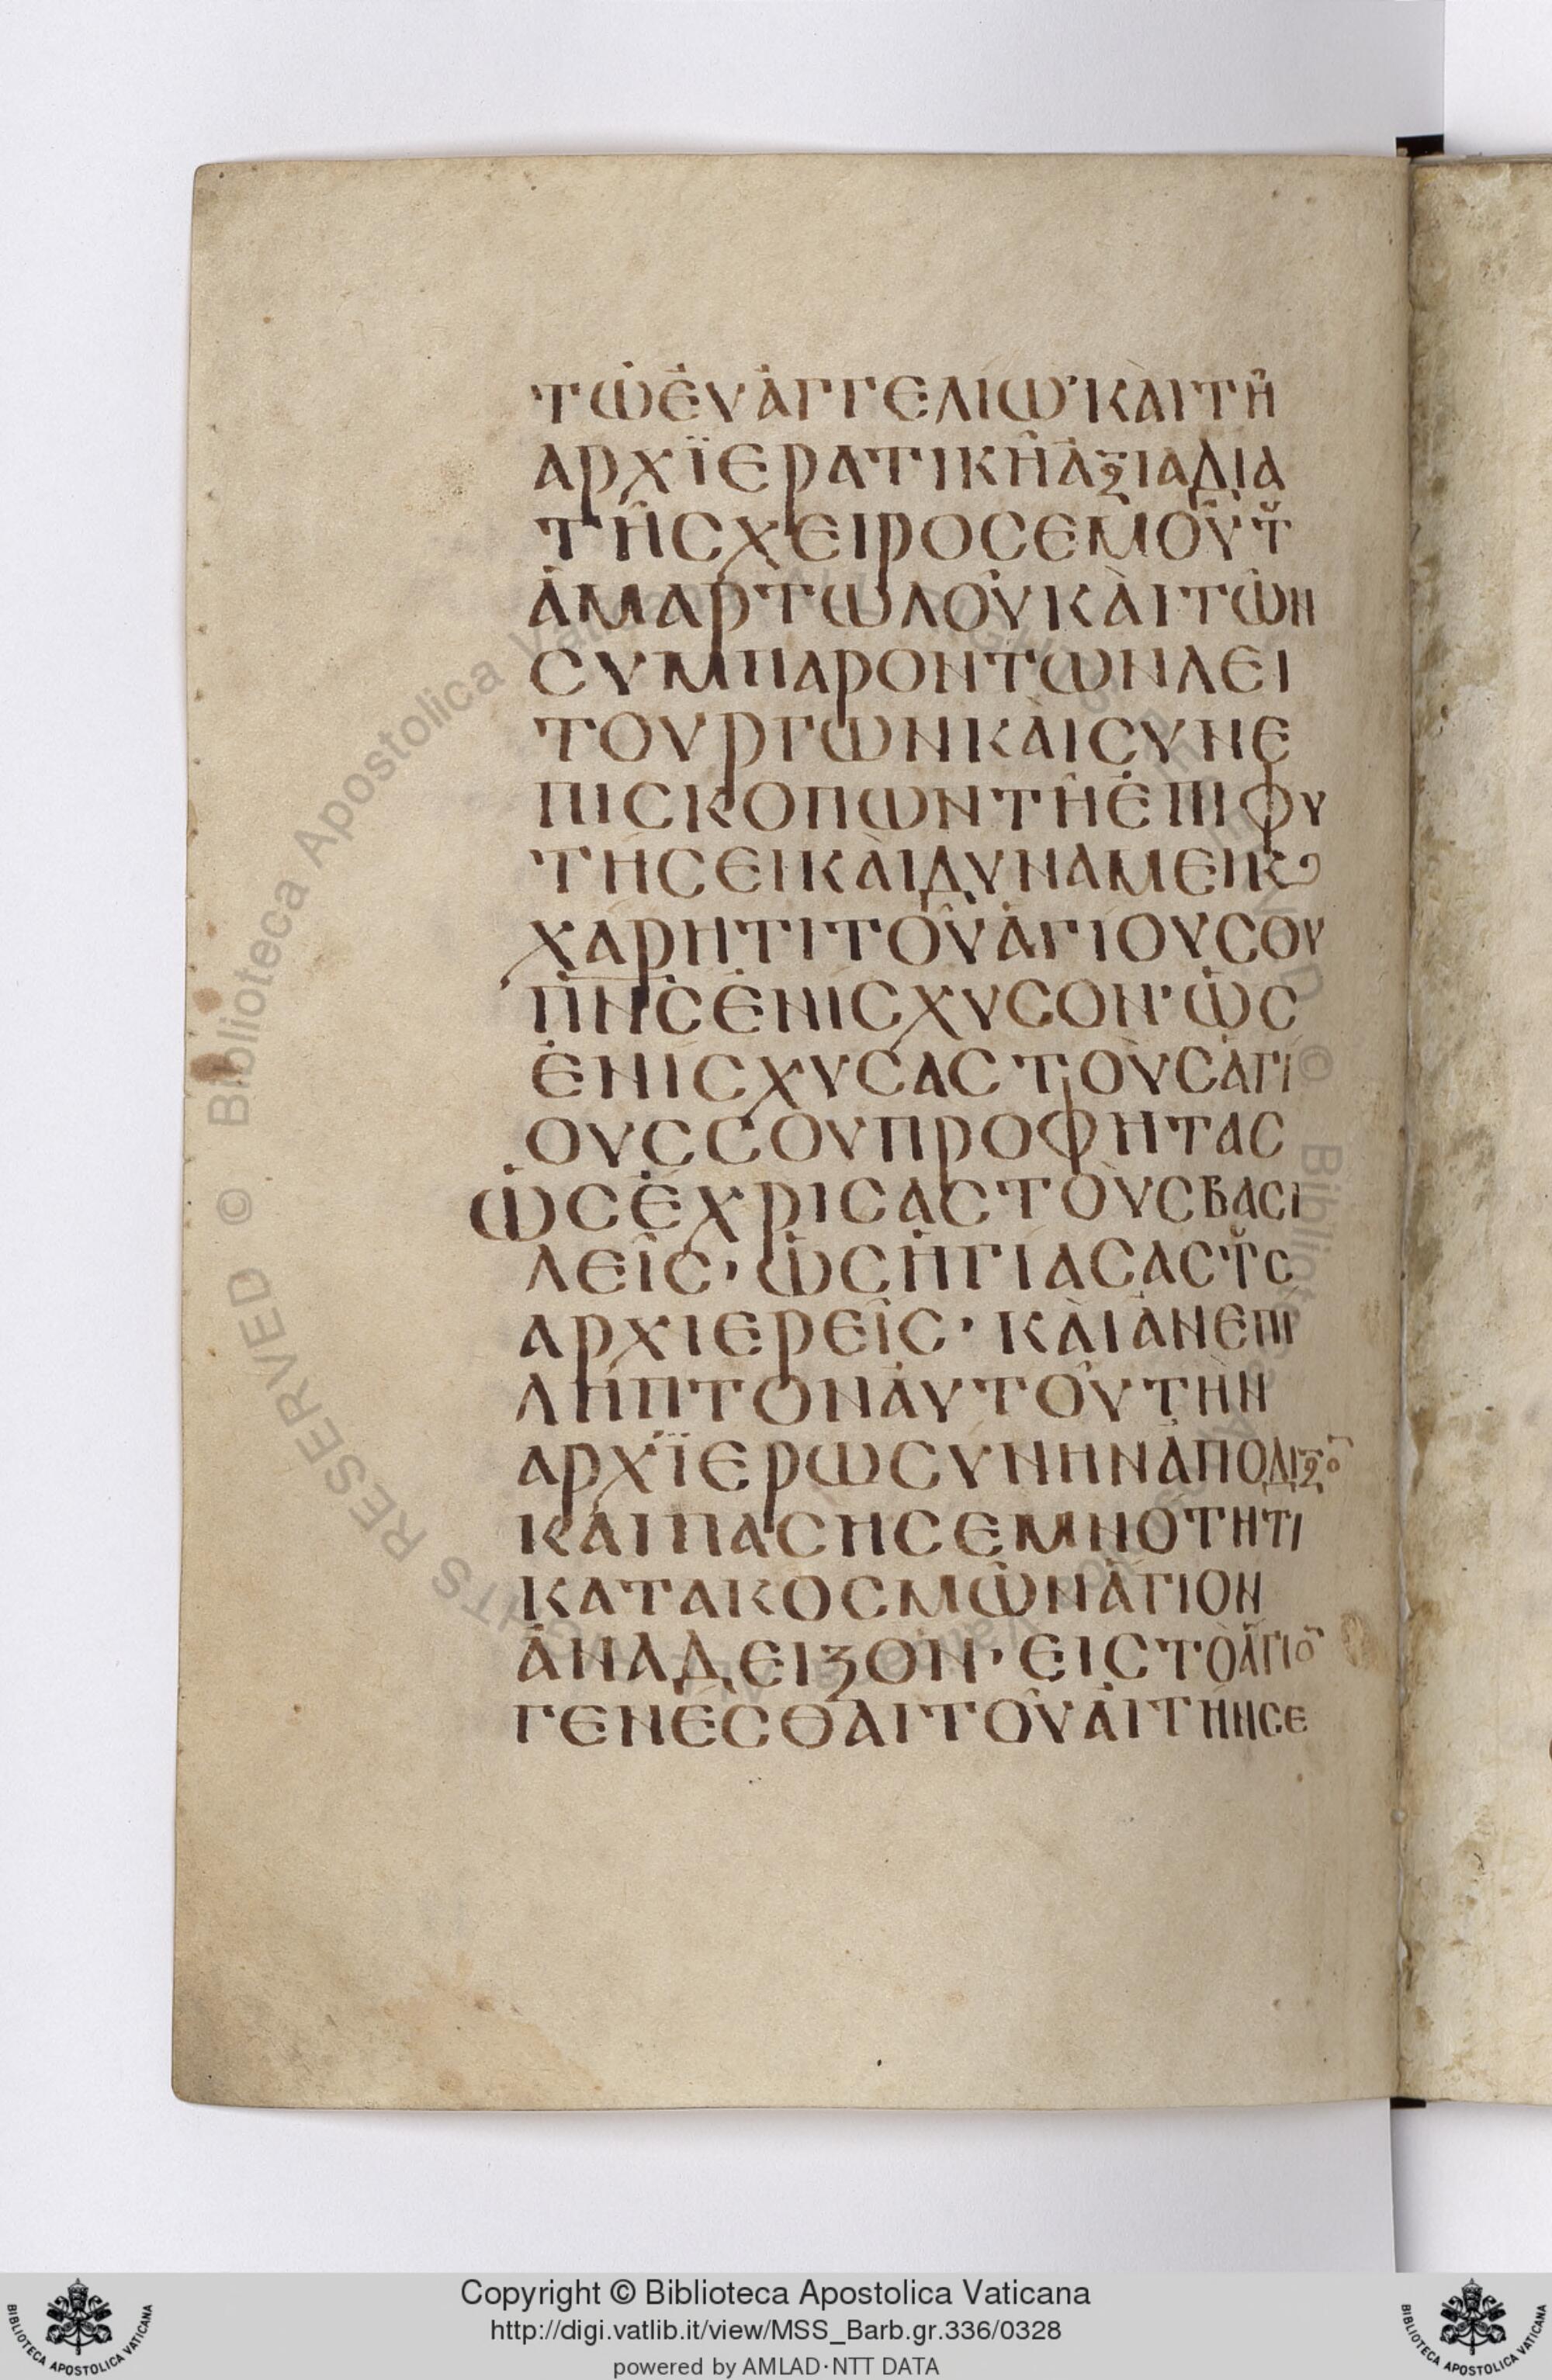 ΤѠ̇Ε̇ΥΑ̇ΓΓΕΛΙѠ·ΚΑῚΤΗ̑
ΑΡΧΪΕΡΑΤΙΚΗ̑ἊΞΙΑΔΙΑ
ΤΗ̑ϹΧΕΙΡΟϹΕΜΟΥ̑Τ̆
ἉΜΑΡΤѠΛΟΥ̑ΚΑῚΤѠ̑Ν
ϹΥΜΠΑΡΟΝΤѠΝΛΕΙ
ΤΟΥΡΓѠΝΚΑῚϹΥΝΕ
ΠΙϹΚΟΠѠΝΤΗ̑ἘΠΙΦΥ
ΤΉϹΕΙΚΑῚΔΥΝΆΜΕΙΚϨ
ΧΑΡΗΤΙΤΟΥ̑ἉΓΙΟΥϹΟΥ
Π̅Ν̅Ϲ̅ἘΝΙϹΧΥϹΟΝ·ὩϹ
ἘΝΙϹΧΥϹΑϹΤΟῪϹἉΓΙ
ΟΥϹϹΟΥΠΡΟΦΗΤΑϹ
ὩϹἘΧΡΙϹΑϹΤΟῪϹΒΑϹΙ
ΛΕΙ̑Ϲ·ὩϹἩΓΙΑϹΑϹΤ̆Ϲ
ΑΡΧΙΕΡΕΙ̑Ϲ·ΚΑῚἈΝΕΠΙ
ΛΗΠΤΟΝἈΥΤΟΥ̑ΤῊΝ
ΑΡΧΪΕΡѠϹΥΝΗΝἈΠΟΔΙΞΟ̅
ΚΑΙΠΑϹΗϹΕΜΝΟΤΗΤΙ
ΚΑΤΑΚΟϹΜѠ̑ΝἉΓΙΟΝ
ἈΝΑΔΕΙΞΟΝ·ΕΙϹΤῸἍΓΙΟ̅
ΓΕΝΕϹΘΑΙΤΟΥ̑ἈΙΤΗ̑ΝϹΕ
Copyright © Biblioteca Apostolica Vaticana
http://digi.vatlib.it/view/MSS_Barb.gr.336/0328
powered by AMLAD·NTT DATA
BIBLIOTECA APOSTOLICA VATICANA
BIBLIOTECA APOSTOLICA VATICANA